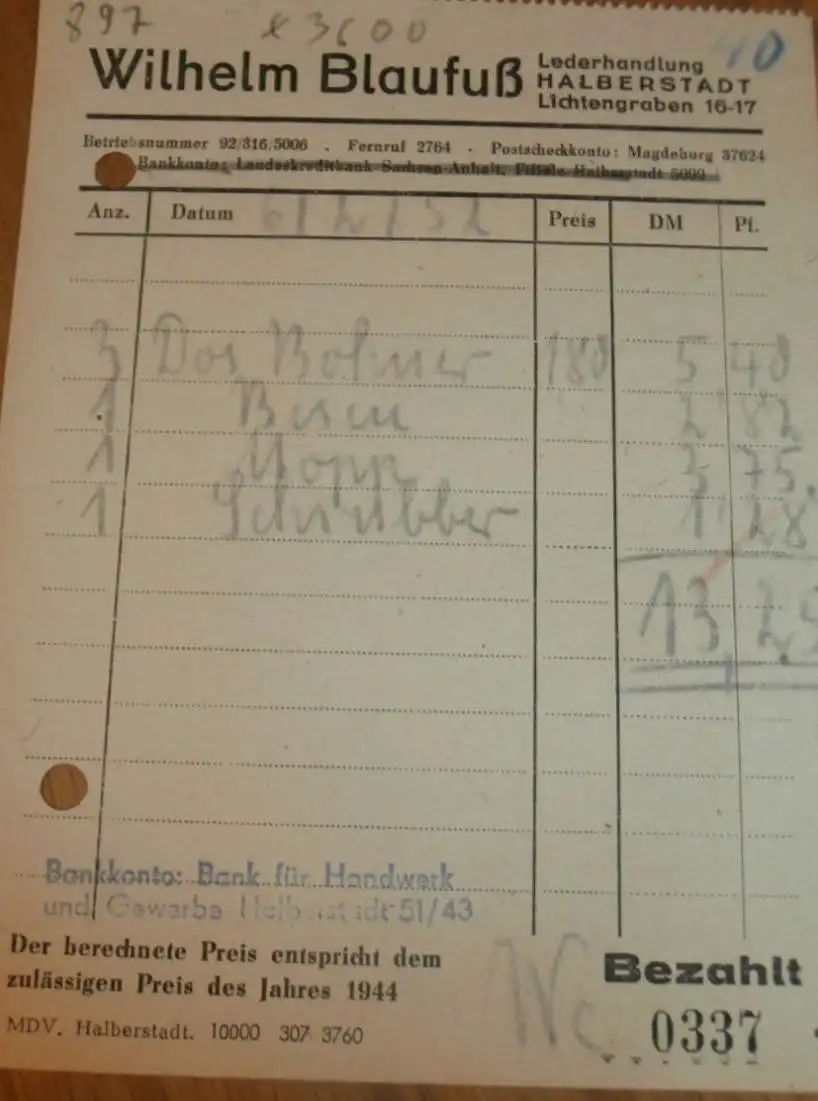 897 x 3600 40
Wilhelm Blaufuß
Lederhandlung
HALBERSTADT
Lichtengraben 16-17
Betriebsnummer 92/316/5006 . Fernruf 2764 - Postscheckkonto: Magdeburg 37624
Bankkonto: Landeskreditbank Sachsen-Anhalt, Filiale Halberstadt 5099
Anz. Datum 6/2/52 Preis DM Pf.
3 Dos Bohner 180 5 40
1 Besen 2 82
1 Mopp 3 75
1 Schrubber 1 28
13,25
Bankkonto: Bank für Handwerk
und Gewerbe Halberstadt 51/43
Der berechnete Preis entspricht dem
zulässigen Preis des Jahres 1944
Bezahlt
MDV. Halberstadt. 10000 307 3760
0337